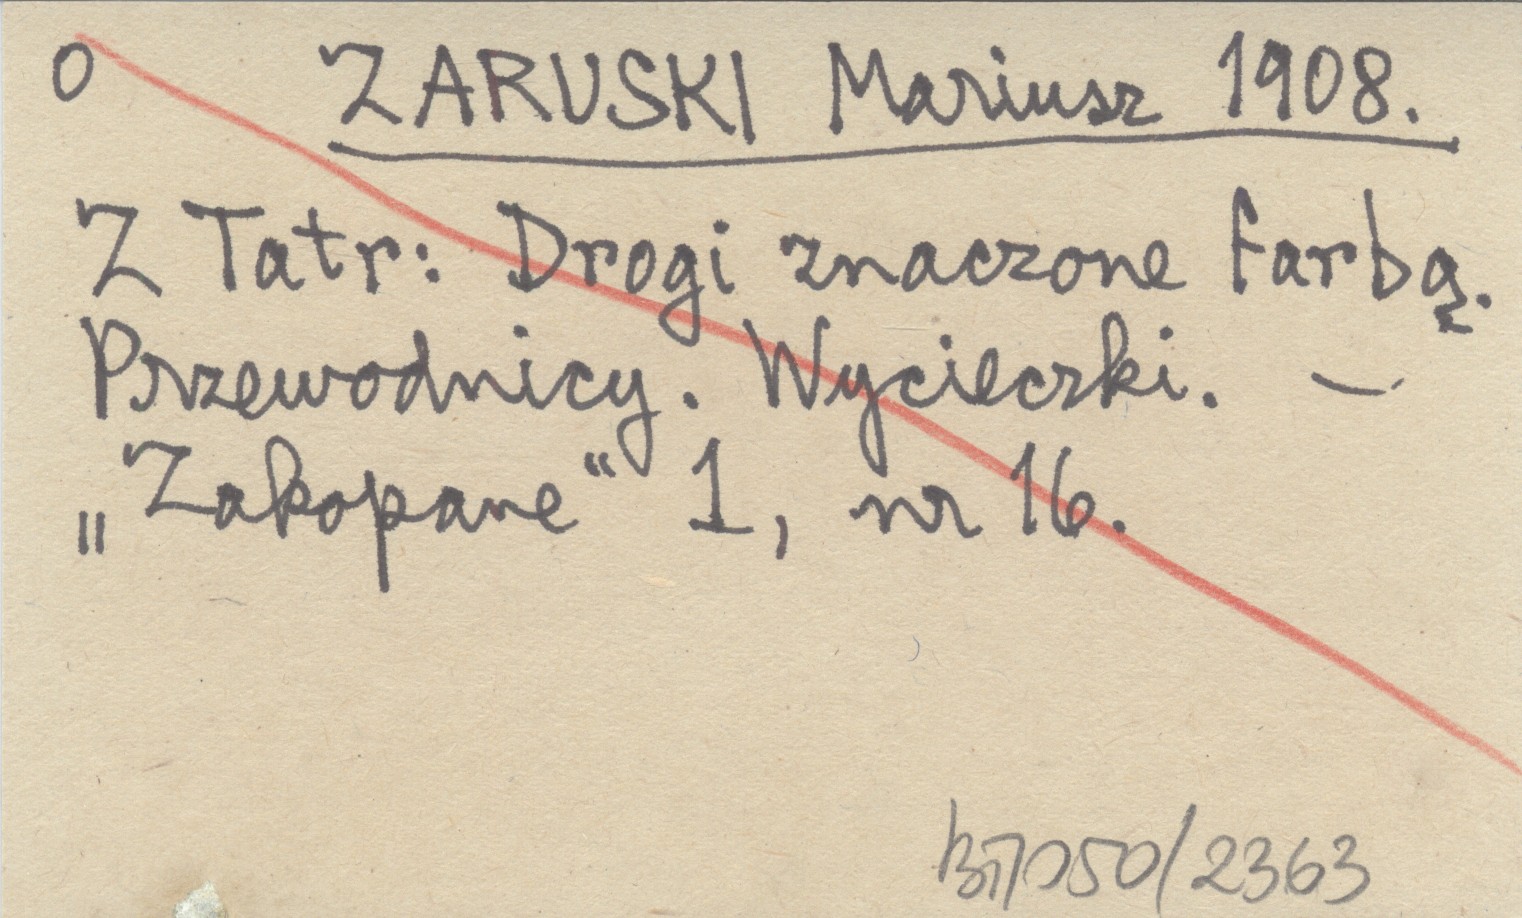 O ZARUSKI Mariusz 1908.
Z Tatr: Drogi znaczone farbą.
Przewodnicy. Wycieczki. —
„Zakopane“ 1, nr 16.
050/2363